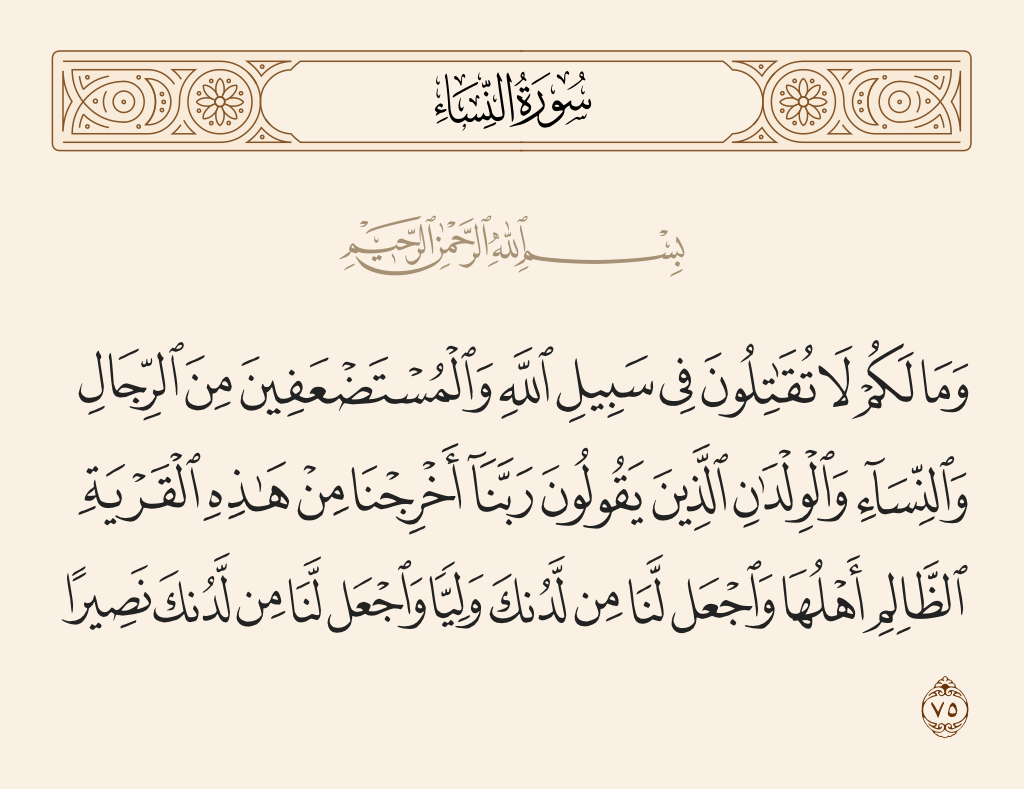 سُورَةُ النِّسَاءِ
بِسْمِ ٱللَّهِ ٱلرَّحْمَٰنِ ٱلرَّحِيمِ
وَمَا لَكُمْ لَا تُقَٰتِلُونَ فِى سَبِيلِ ٱللَّهِ وَٱلْمُسْتَضْعَفِينَ مِنَ ٱلرِّجَالِ
وَٱلنِّسَآءِ وَٱلْوِلْدَٰنِ ٱلَّذِينَ يَقُولُونَ رَبَّنَآ أَخْرِجْنَا مِنْ هَٰذِهِ ٱلْقَرْيَةِ
ٱلظَّالِمِ أَهْلُهَا وَٱجْعَل لَّنَا مِن لَّدُنكَ وَلِيًّا وَٱجْعَل لَّنَا مِن لَّدُنكَ نَصِيرًا
٧٥